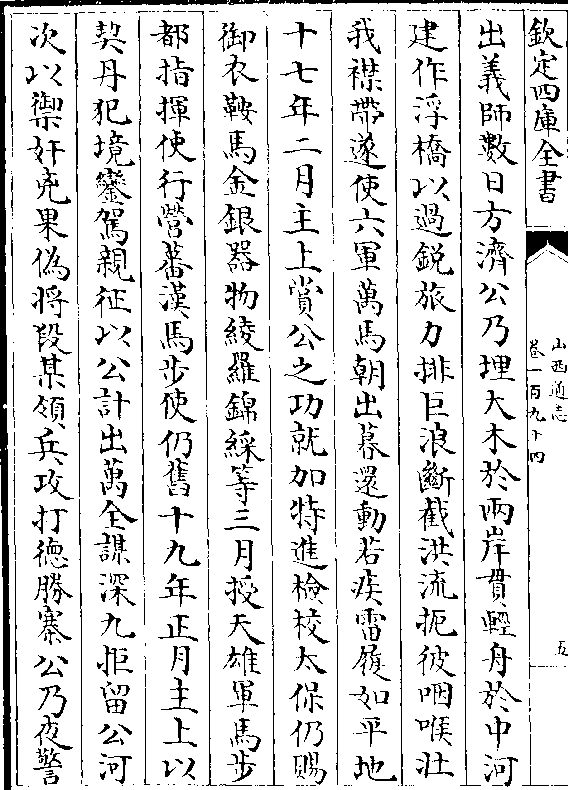 欽定四庫全書
山西通志
卷一百九十四
五
出義師數日方濟公乃埋大木於兩岸貫輕舟於中河
建作浮橋以過鋭旅力排巨浪斷截洪流扼彼咽喉壯
我襟帶遂使六軍萬馬朝出暮還動若疾雷履如平地
十七年二月主上賞公之功就加特進檢校太保仍賜
御衣鞍馬金銀器物綾羅錦綵等三月授天雄軍馬步
都指揮使行營蕃漢馬步使仍舊十九年正月主上以
契丹犯境鑾駕親征以公計出萬全謀深九拒留公河
次以禦奸兇果偽將段某領兵攻打德勝寨公乃夜警